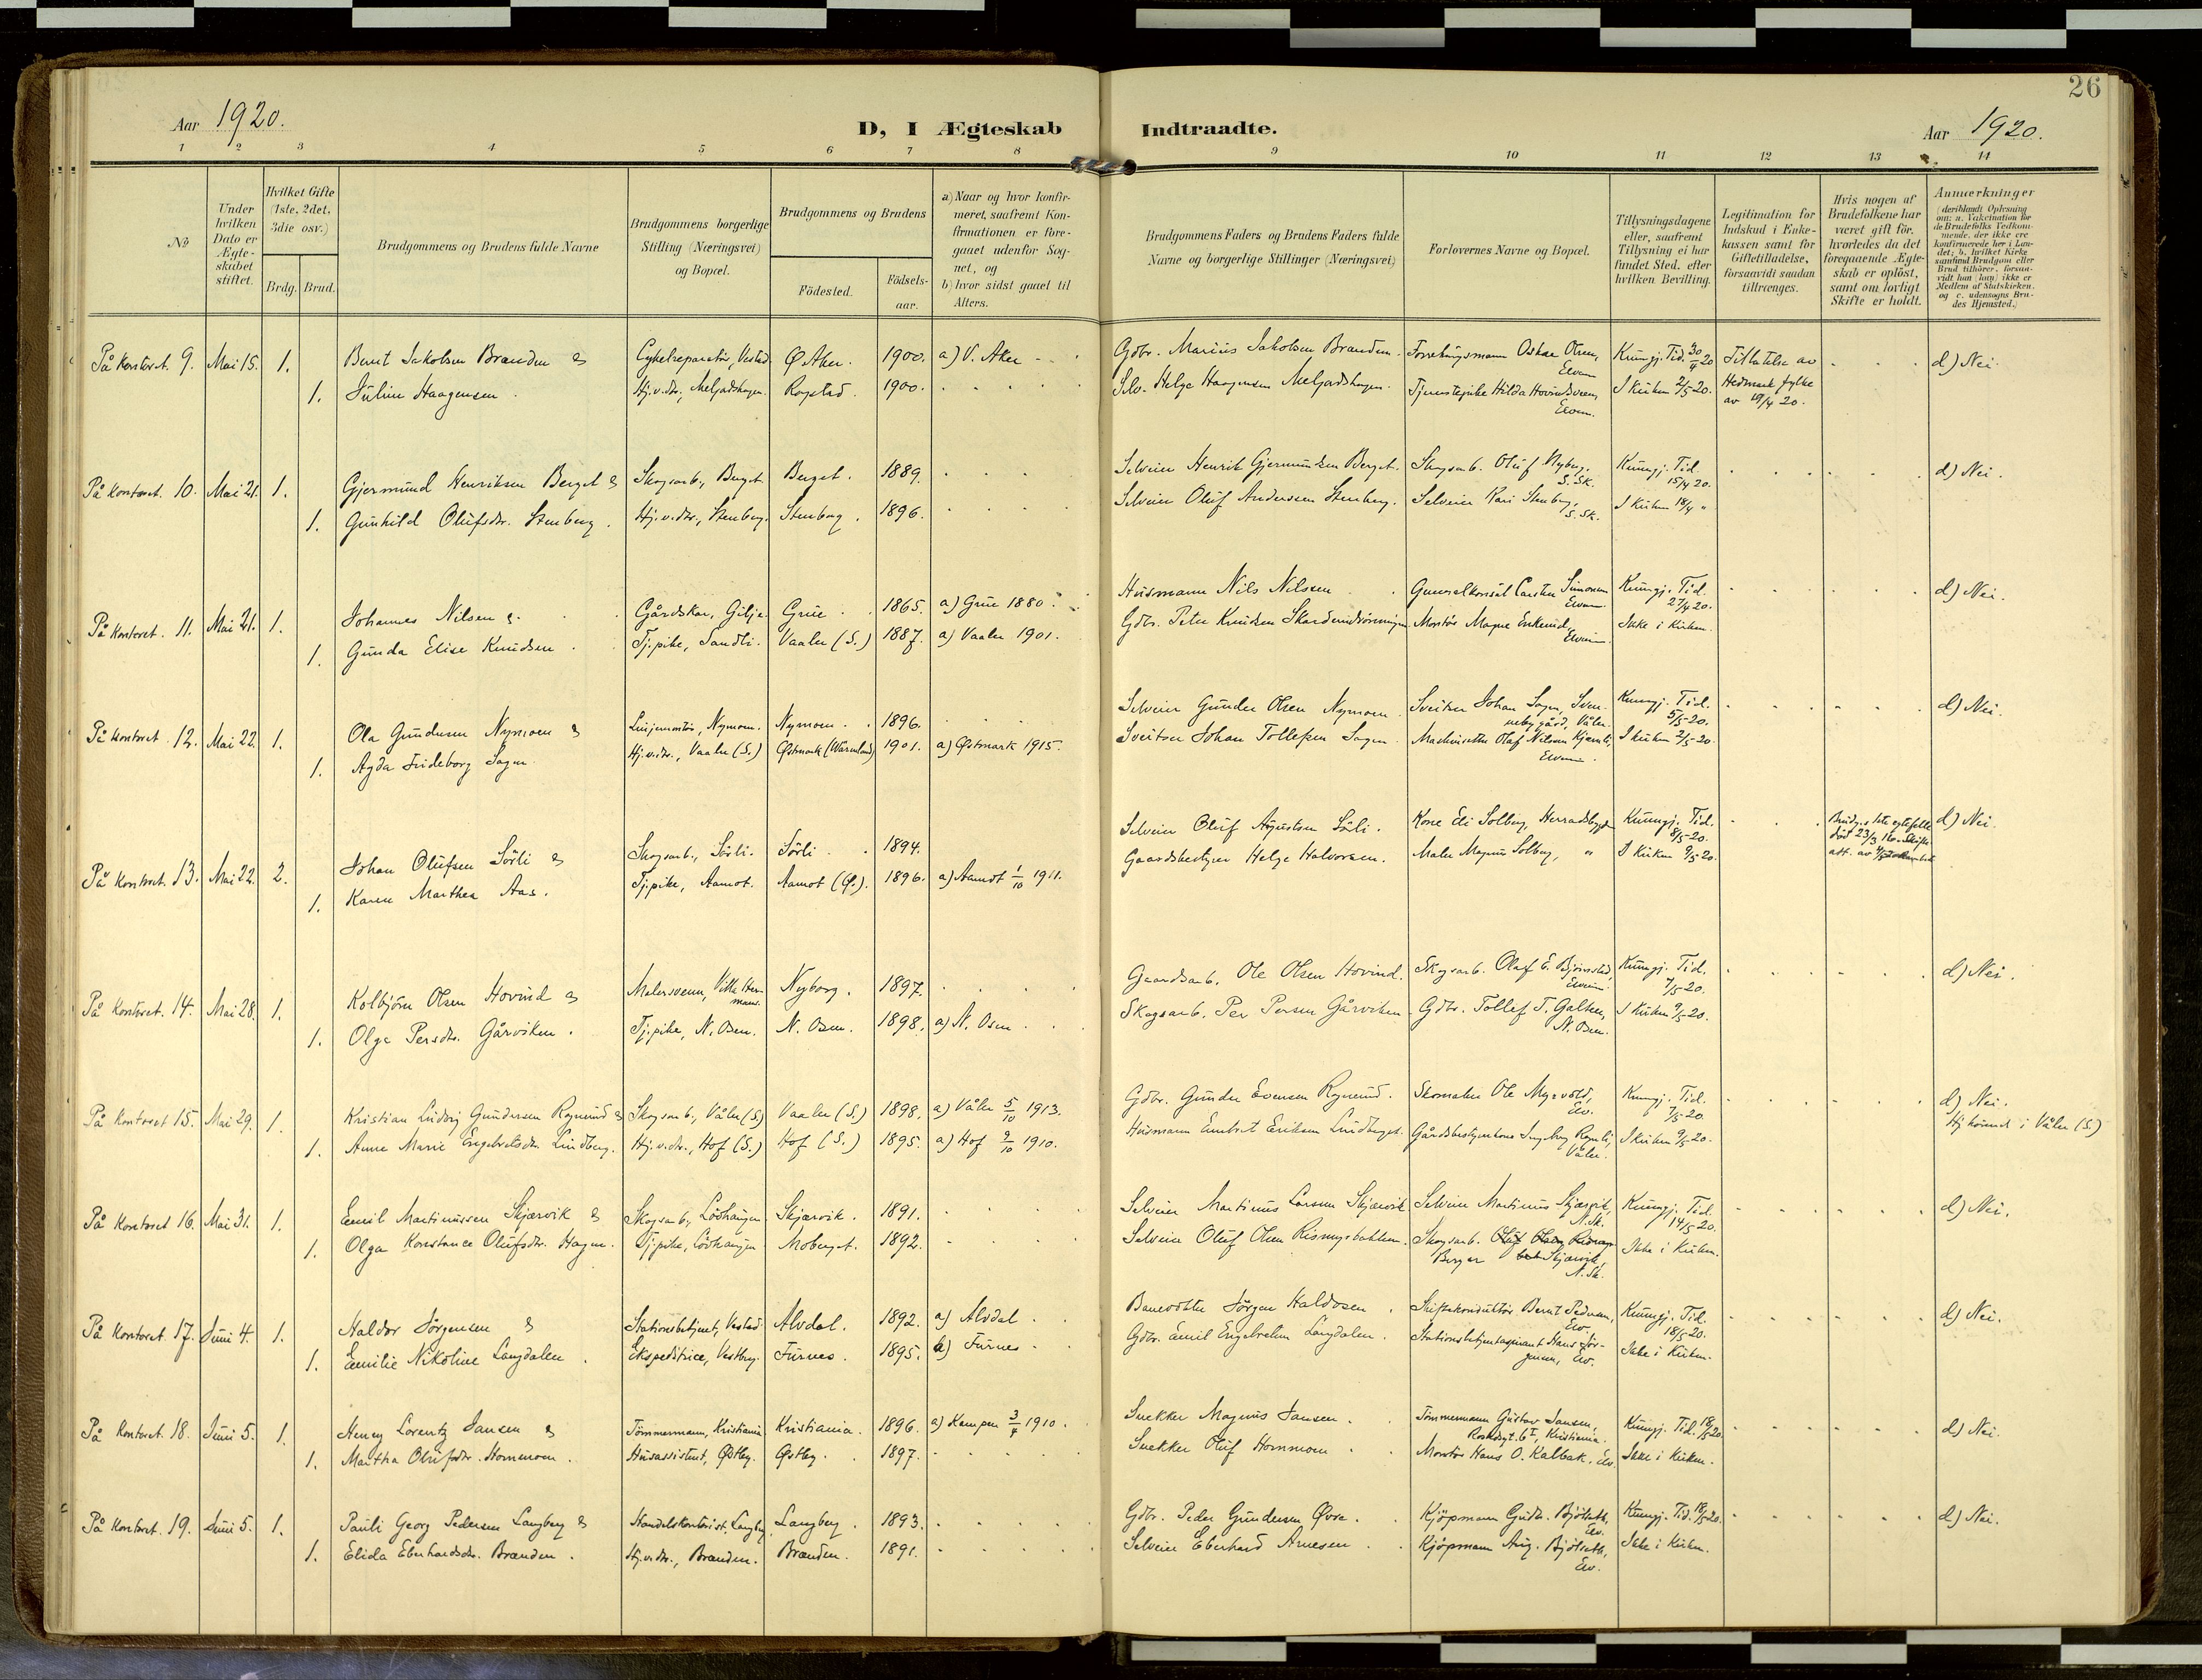 26
Aar 1920.
D, I Ægteskab Indtraadte.
Aar 1920.
1 2 3 4 5 6 7 8 9 10 11 12 13 14
No
Under hvilken Dato er Ægteskabet stiftet.
Hvilket Gifte (1ste, 2det, 3die osv.)
Brdg. Brud.
Brudgommens og Brudens fulde Navne
Brudgommens borgerlige Stilling (Næringsvei) og Bopæl.
Brudgommens og Brudens
Födested.
Födsels-aar.
a) Naar og hvor konfirmeret, saafremt Konfirmationen er foregaaet udenfor Sognet, og
b) hvor sidst gaaet til Alters.
Brudgommens Faders og Brudens Faders fulde Navne og borgerlige Stillinger (Næringsvei)
Forlovernes Navne og Bopæl.
Tillysningsdagene eller, saafremt Tillysning ei har fundet Sted, efter hvilken Bevilling.
Legitimation for Indskud i Enkekassen samt for Giftetilladelse, forsaavidt saadan tiltrænges.
Hvis nogen af Brudefolkene har været gift før, hvorledes da det foregaaende Ægteskab er oplöst, samt om lovligt Skifte er holdt.
Anmærkninger
(deriblandt Oplysning om: a. Vakcination for de Brudefolks Vedkommende, der ikke ere konfirmerede her i Landet; b. hvilket Kirkesamfund Brudgom eller Brud tilhører, forsaavidt han (hun) ikke er Medlem af Statskirken, og c. udensogns Brudes Hjemsted.)
På kontoret. 9. Mai 15. 1. Bernt Jakobsen Brænden & Cykelreparatör, Vestad Ø. Aker. 1900. a) V. Aker Gdbr. Marius Jakobsen Brænden. Forretningsmann Oskar Olsen, Elverum Kungj. Tid. 30/4 20 Tillatelse av d) Nei.
1. Juline Haagensen. Hj.v.dtr., Melgadshagen. Rogstad. 1900. Selv. Helge Haagensen Melgadshagen. Tjenestepike Hilda Elverum. I kirken 2/5 20. Hedmark fylke av 19/4 20.
På kontoret. 10. Mai 21. 1. Gjermund Henriksen Berget & Skogsarb., Berget Berget. 1889. Selveier Henrik Gjermundsen Berget. Skogsarb. Oluf Nyberg. S. Sk. Kungj. Tid. 15/4 20. d) Nei.
1. Gunhild Olufsdtr. Stenberg. Hj.v.dtr., Stenberg. Stenberg. 1896. Selveier Oluf Anderssen Stenberg. Selveier Kari Stenberg, S. Sk. I kirken 18/4 "
På kontoret. 11. Mai 21. 1. Johannes Nilsen & Gårdskar, Gilje Grue. 1865. a) Grue 1880. Husmann Nils Nilssen Generalkonsul Carsten Simonsen Elverum Kungj. Tid. 27/4 20. d) Nei.
1. Gunda Elise Knudsen. Tj.pike, Sandli. Vaaler (S.) 1887. a) Vaaler 1901. Gdbr. Peter Knudsen Montör Magne Elverum Ikke i kirken.
På kontoret. 12. Mai 22. 1. Ola Gundersen Nymoen & Linjemontör, Nymoen. Nymoen. 1896. Selveier Gunder Olsen Nymoen Sveitser Johan Sagen, Svenneby gård, Våler. Kungj. Tid. 5/5 20. d) Nei.
1. Agda Frideborg Sagen. Hj.v.dtr., Vaaler (S.) Østmark (Wärmland) 1901. a) Østmark 1915. Sveitser Johan Tollefsen Sagen Maskinsetter Olaf Nilsen Elverum. I kirken 2/5 20.
På kontoret. 13. Mai 22. 2. Johan Olufsen Sörli & Skogsarb., Sörli. Sörli. 1894. Selveier Oluf Agustsen Sörli. Kone Eli Solberg, Herradsbygden Kungj. Tid. 8/5 20. Brudg.s 1ste egtefelle död 23/3 16. Skifte att. av d) Nei.
1. Karen Marthea Aas. Tj.pike, Aamot. Aamot (Ø.). 1896. a) Aamot 1/10 1911. Gaardsbestyrer Helge Halvorsen. Maler Magnus Solberg, " I kirken 9/5 20.
På kontoret. 14. Mai 28. 1. Kolbjörn Olsen Hovind & Malersvenn, Nyborg. 1897. Gaardsarb. Ole Olsen Hovind. Skogsarb. Olaf E. Björnstad, Elverum Kungj. Tid. 7/5 20. d) Nei.
1. Olga Persdtr. Gårviken. Tj.pike, N. Osen. N. Osen. 1898. a) N. Osen Skogsarb. Per Persen Gårviken Gdbr. Tollef T. Galten, N. Osen. I kirken 9/5 20.
På kontoret 15. Mai 29. 1. Kristian Ludvig Gundersen Rognerud & Skogsarb., Våler (S.) Vaaler (S.) 1898. a) Våler 5/10 1913. Gdbr. Gunder Evensen Rognerud. Skomaker Ole Myrvold, Elv. Kungj. Tid. 7/5 20. d) Nei.
1. Anne Marie Engebretsdtr. Lindberg. Hj.v.dtr., Hof (S.) Hof (S.) 1895. a) Hof 9/10 1910. Husmann Embret Eriksen Lindberget. Gårdsbestyrerkone Ingeborg Våler. I kirken 9/5 20. Hj.hörende i Våler (S.)
På kontoret 16. Mai 31. 1. Emil Martinussen Skjærvik & Skogsarb., Lövhaugen Skjærvik. 1891. Selveier Martinus Larsen Skjærvik Selveier Martinus Skjærvik, N. Sk. Kungj. Tid. 14/5 20. d) Nei.
1. Olga Konstance Olufsdtr. Hagen. Tj.pike, Lövhaugen Moberget. 1892. Selveier Oluf Olsen Rismyrbakken. Skogsarb. Birger Skjærvik, N. Sk. Ikke i kirken.
På kontoret 17. Juni 4. 1. Haldor Jörgensen & Stationsbetjent, Vestad Alvdal. 1892. a) Alvdal. Banevokter Jörgen Haldosen. Skiftekonduktör Bernt Pedersen, Elv. Kungj. Tid. 18/5 20. d) Nei.
1. Emilie Nikoline Langdalen. Ekspeditrice, Vestby. Furnes. 1895. a) Furnes. Gdbr. Emil Engebretsen Langdalen. Stationsbetjentaspirant Hans Jörgensen, Elv. Ikke i kirken.
På kontoret. 18. Juni 5. 1. Henry Lorentz Jansen & Tömmermann, Kristiania Kristiania. 1896. a) Kampen 3/4 1910. Snekker Magnus Jansen. Tömmermann Gustav Jansen, Kristiania. Kungj. Tid. 18/5 20 d) Nei.
1. Martha Olufsdtr. Hornmoen. Husassistent, Østby. Østby. 1897. Snekker Oluf Hornmoen Montör Hans O. Kalbak, Elv. Ikke i kirken.
På kontoret. 19. Juni 5. 1. Pauli Georg Pedersen Langberg & Handelskontorist, Langberg Langberg. 1893. Gdbr. Peder Gundersen Øvre. Kjöpmann Gudbr. Björseth, Elv. Kungj. Tid. 18/5 20. d) Nei.
1. Elida Eberhardsdtr. Brænden. Hj.v.dtr., Brænden. Brænden. 1891. Selveier Eberhard Arnesen Kjöpmann Aug. Björseth, Elv. Ikke i kirken.